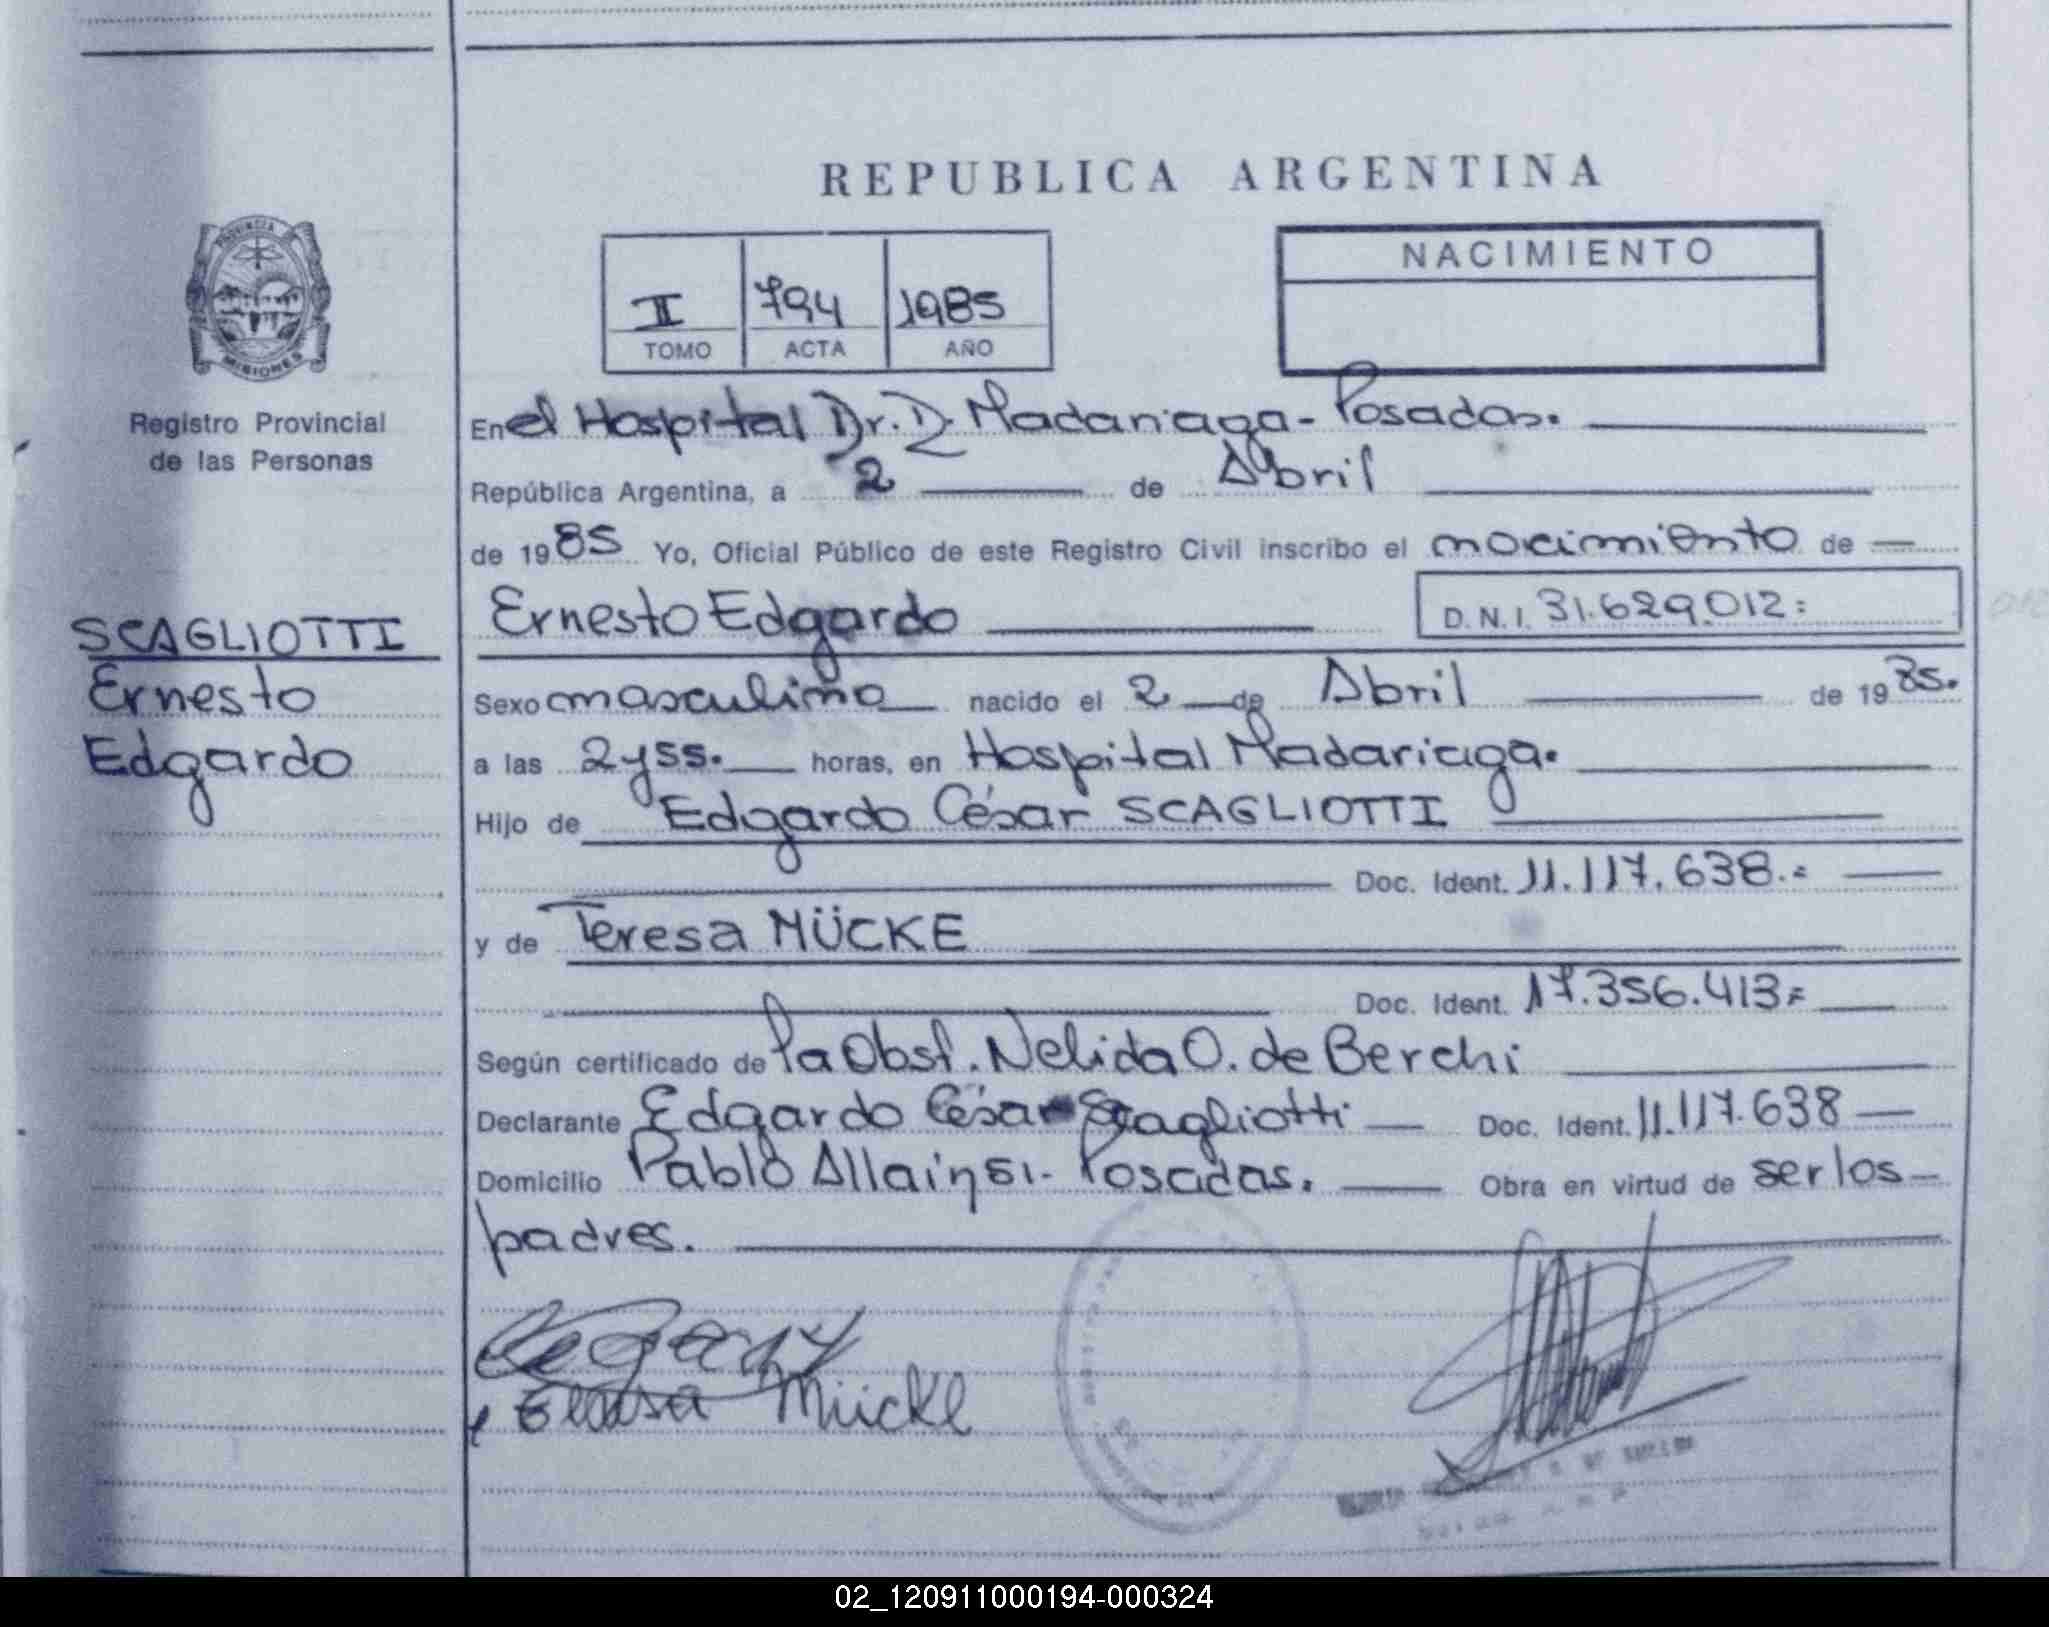 REPUBLICA ARGENTINA
PROVINCIA
MISIONES
Registro Provincial
de las Personas
II 794 1985
TOMO ACTA AÑO
NACIMIENTO
En el Hospital Dr. D. Madariaga - Posadas.
República Argentina, a 2 de Abril
de 1985 Yo, Oficial Público de este Registro Civil inscribo el nacimiento de
Ernesto Edgardo D.N.I. 31.629.012:
SCAGLIOTTI
Ernesto
Edgardo
Sexo masculino nacido el 2 de Abril de 1985.
a las 2 y 55. horas, en Hospital Madariaga.
Hijo de Edgardo César SCAGLIOTTI
Doc. Ident. 11.117.638.=
y de Teresa MÜCKE
Doc. Ident. 17.356.413=
Según certificado de la Obst. Nelida O. de Berchi
Declarante Edgardo César Scagliotti Doc. Ident. 11.117.638
Domicilio Pablo Allain 51 - Posadas. Obra en virtud de ser los
padres.
Mücke
02_120911000194-000324